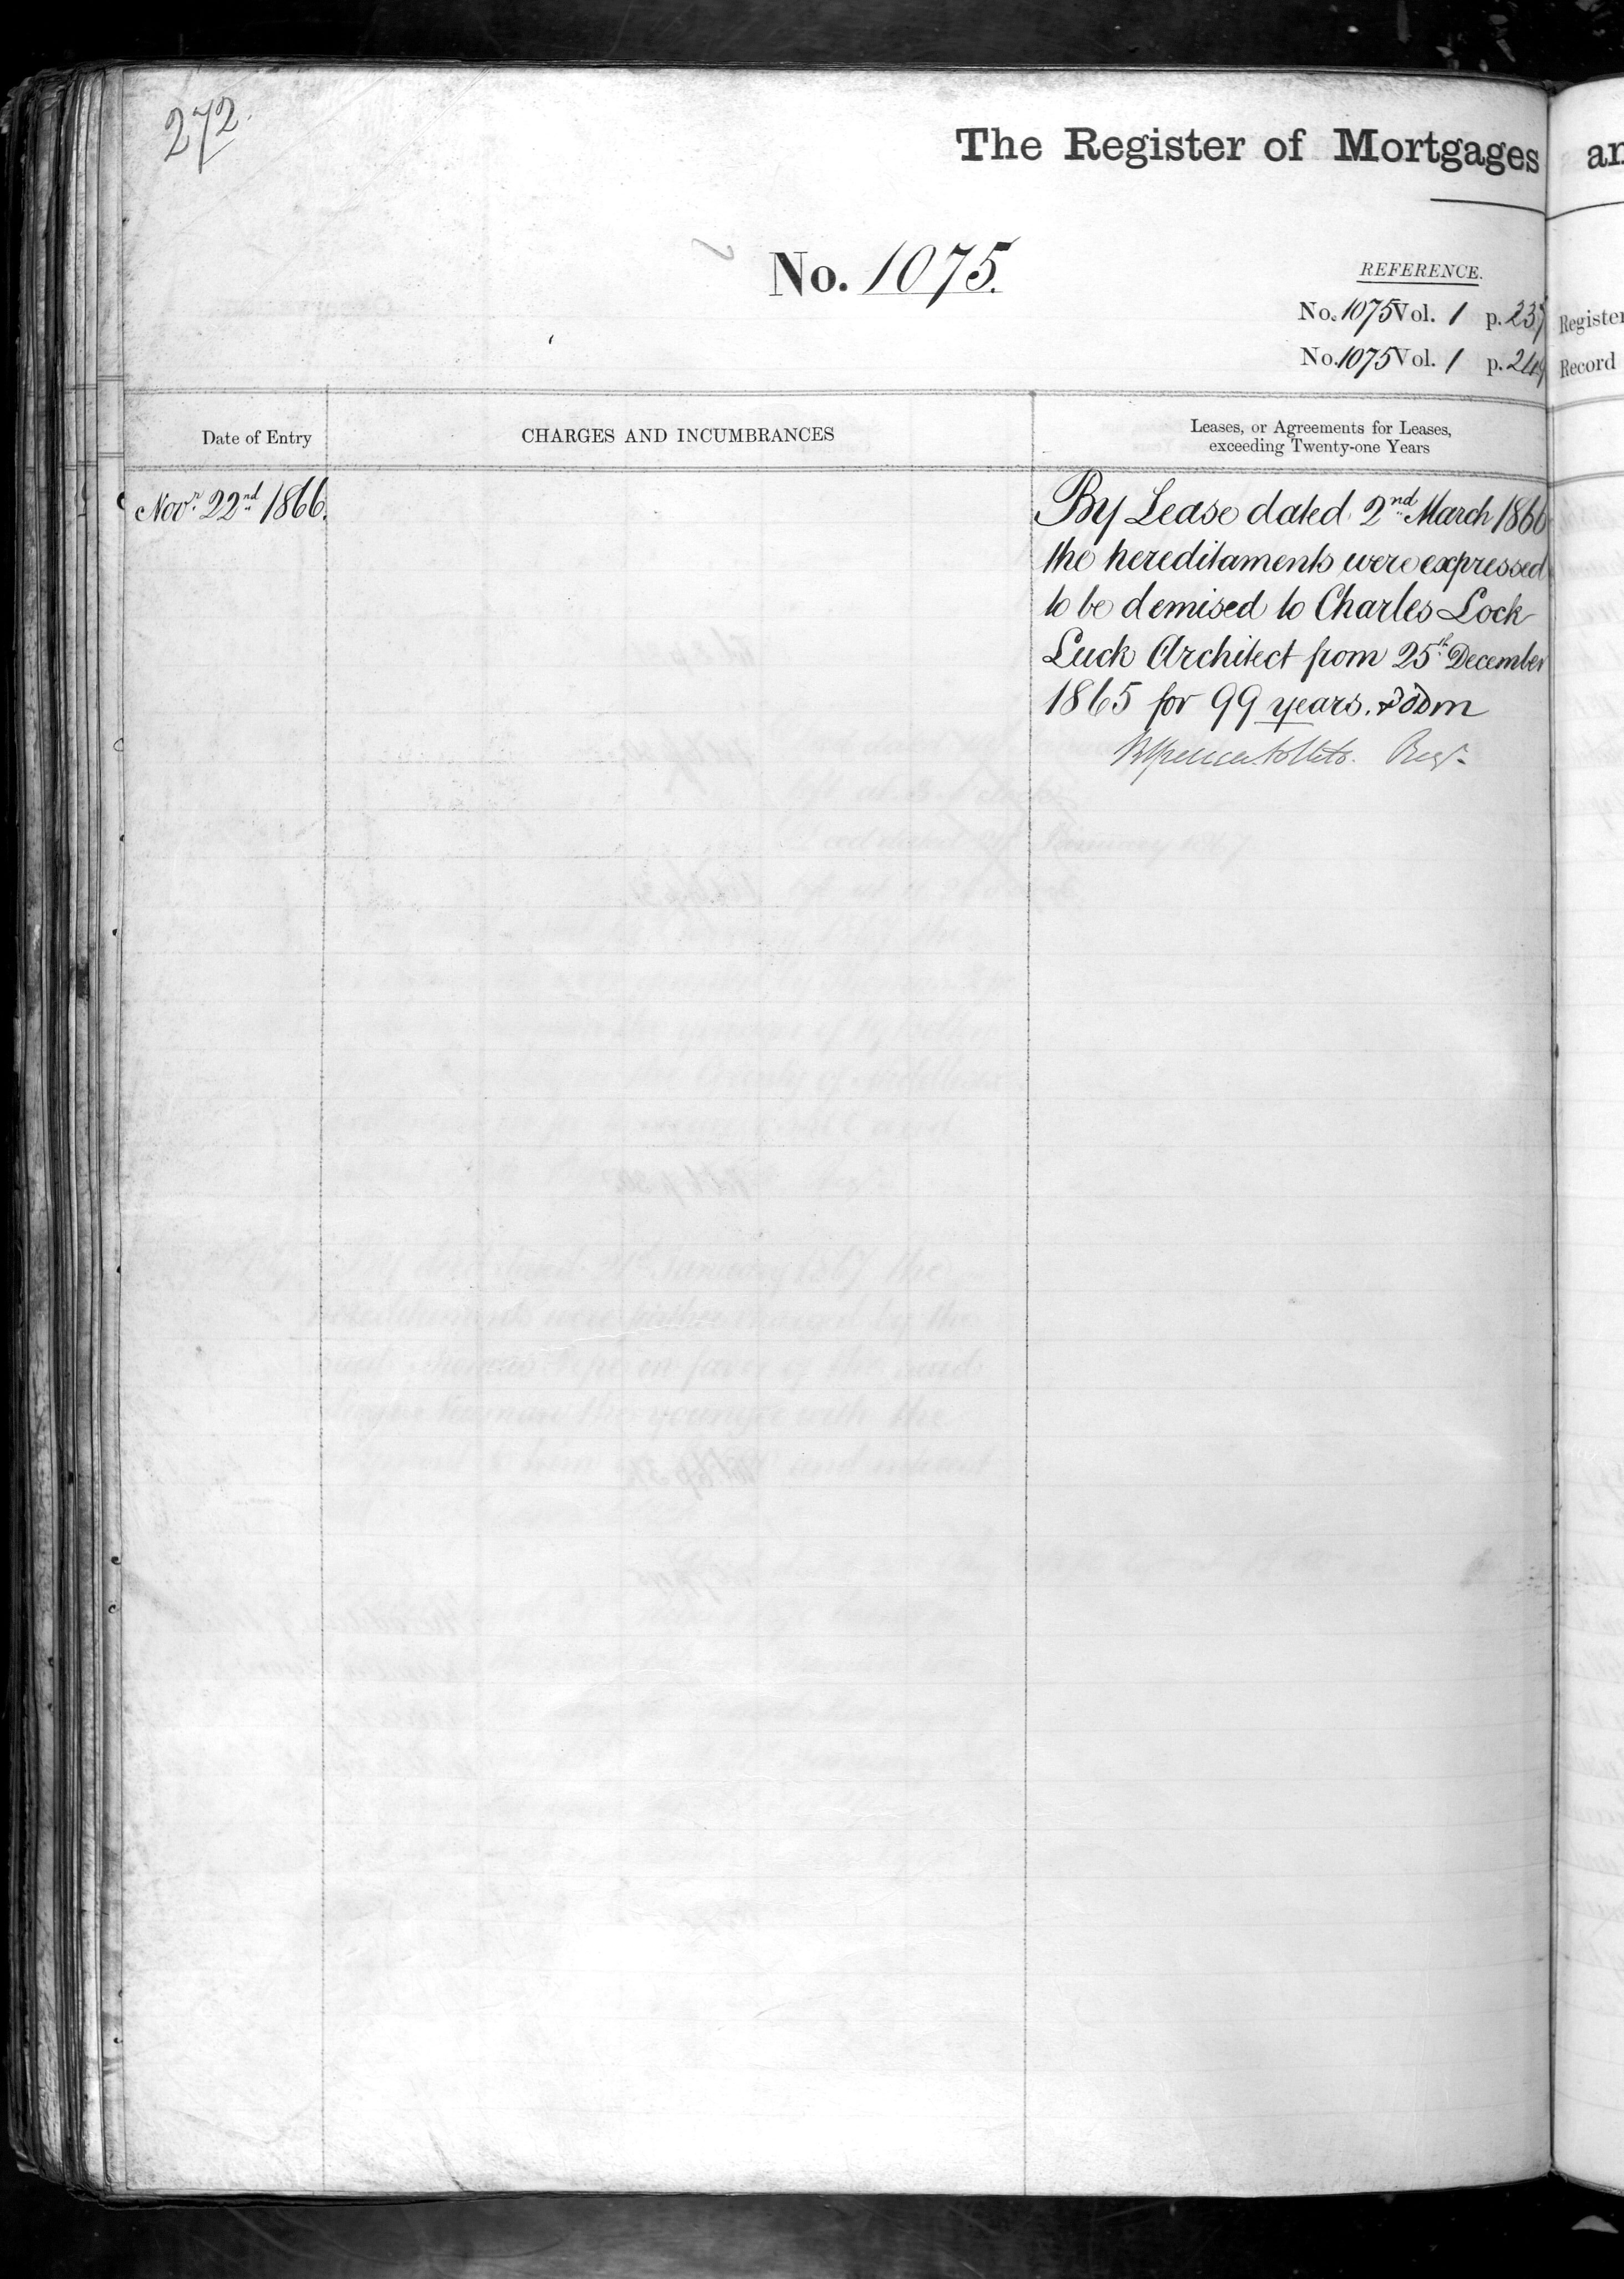 272.
The Register of Mortgages
an
No. 1075.
REFERENCE.
No. 1075 Vol. 1 p. 237
Register
No. 1075 Vol. 1 p. 249
Record
Date of Entry
CHARGES AND INCUMBRANCES
Leases, or Agreements for Leases,
exceeding Twenty-one Years
Novr. 22nd 1866.
By Lease dated 2nd March 1866
the hereditaments were expressed
to be demised to Charles Lock
Luck Architect from 25th December
1865 for 99 years.
Regr.